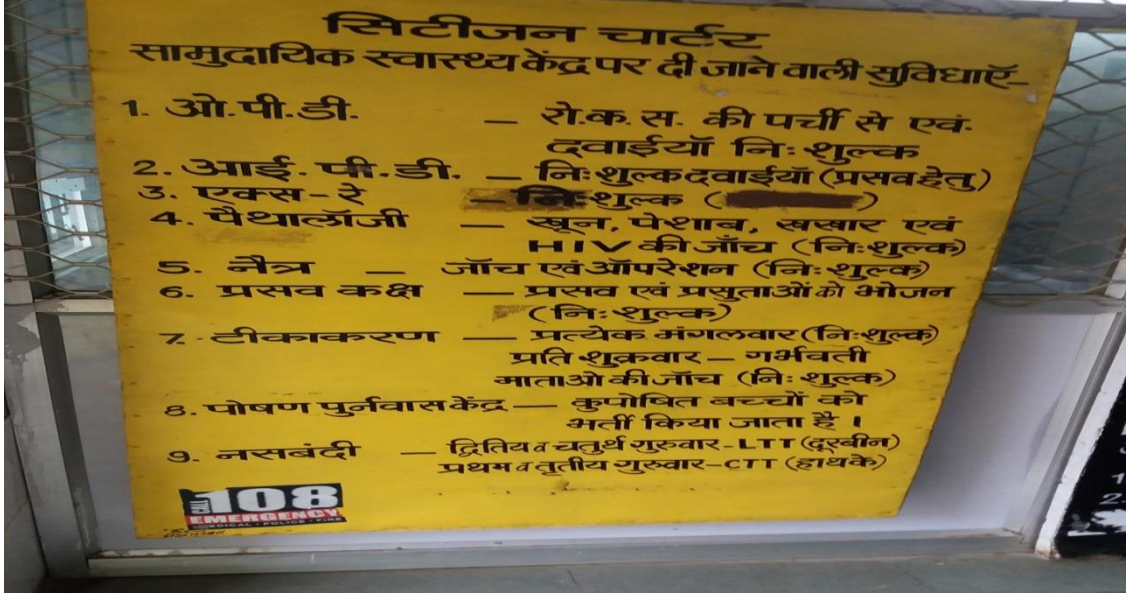 सिटीजन चार्टर
सामुदायिक स्वास्थ्य केंद्र पर दी जाने वाली सुविधाएॅ_
1. ओ.पी.डी. — रो.क.स. की पर्ची से एवं
दवाईयाॅ निः शुल्क
2. आई.पी.डी. — निःशुल्क दवाईयाॅ (प्रसव हेतु)
3. एक्स-रे — निःशुल्क ( )
4. पैथालॉजी — खून, पेशाब, खखार एवं
HIV की जाँच (निःशुल्क)
5. नैत्र — जाॅच एवं ऑपरेशन (निःशुल्क)
6. प्रसव कक्ष — प्रसव एवं प्रसुताओं को भोजन
(निःशुल्क)
7. टीकाकरण — प्रत्येक मंगलवार (निःशुल्क)
प्रति शुक्रवार — गर्भवती
माताओ की जाॅच (निः शुल्क)
8. पोषण पुर्नवास केंद्र — कुपोषित बच्चों को
भर्ती किया जाता है ।
9. नसबंदी — द्वितिय व चतुर्थ गुरुवार-LTT (दूरबीन)
प्रथम व तृतीय गुरुवार-CTT (हाथके)
CALL 108
EMERGENCY
MEDICAL • POLICE • FIRE